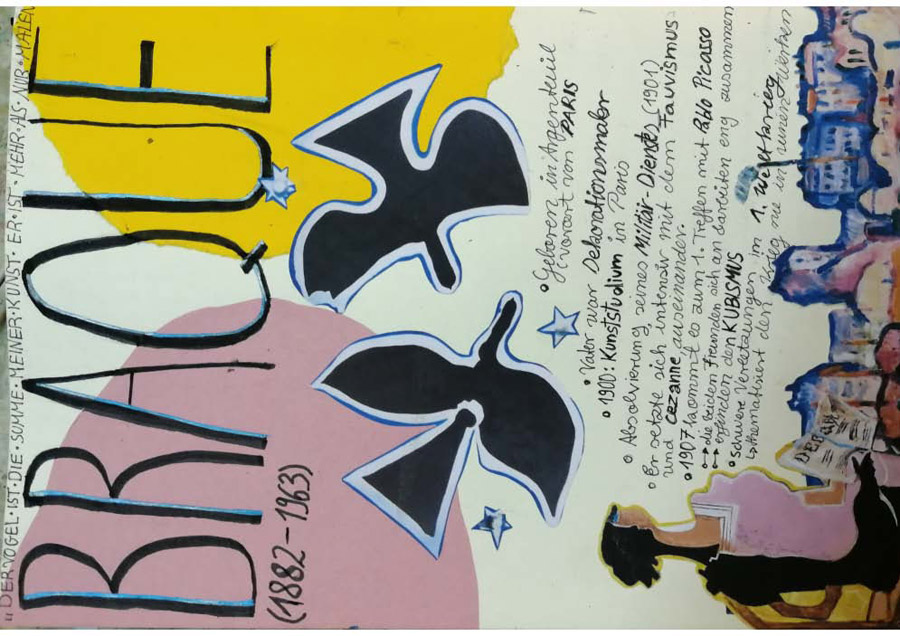 "DER VOGEL IST DIE SUMME MEINER KUNST. ER IST MEHR ALS NUR MALEN
BRAQUE
(1882-1963)
• Geboren in Argenteuil
(Vorort von PARIS
• Vater war Dekorationsmaler
• 1900: Kunststudium in Paris
• Absolvierung seines Militär-Dienstes (1901)
• Er setzte sich intensiv mit dem Fauvismus
und Cezanne auseinander.
• 1907 kommt es zum 1. Treffen mit Pablo Picasso
→ die beiden freunden sich an & arbeiten eng zusammen
→ erfinden den KUBISMUS
• schwere Verletzungen im 1. Weltkrieg
↳ thematisiert den Krieg nie in seinen
DEBAT